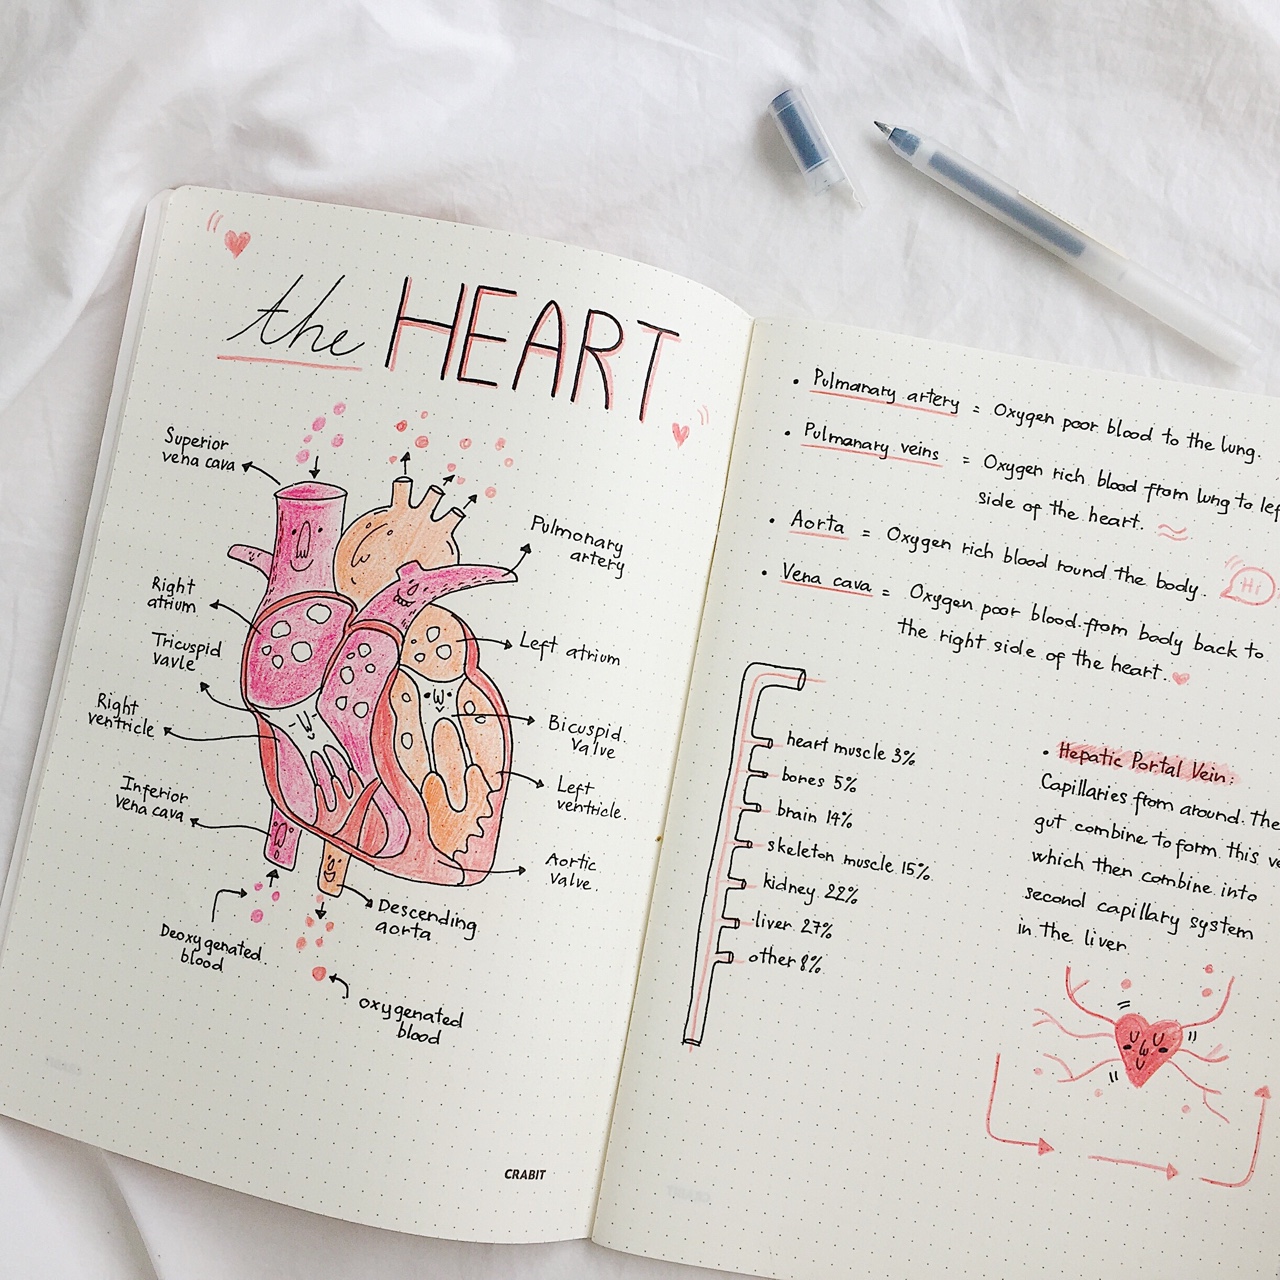 the HEART
Superior
vena cava
Pulmonary
artery
Right
atrium
Left atrium
Tricuspid
vavle
Right
ventricle
Bicuspid.
Valve
Left
ventricle.
Inferior
vena cava
Aortic
Valve.
Descending
aorta
Deoxygenated.
blood
oxygenated
blood
CRABIT
• Pulmanary artery = Oxygen poor blood to the lung.
• Pulmanary veins = Oxygen rich blood from lung to lef
side of the heart.
• Aorta = Oxygen rich blood round the body.
Hi
• Vena cava = Oxygen poor blood from body back to
the right side of the heart.
heart muscle 3%
bones 5%
brain 14%
skeleton muscle 15%
kidney 22%
liver 27%
other 8%
• Hepatic Portal Vein:
Capillaries from around. The
gut combine to form this ve
which then combine into
second capillary system
in the liver